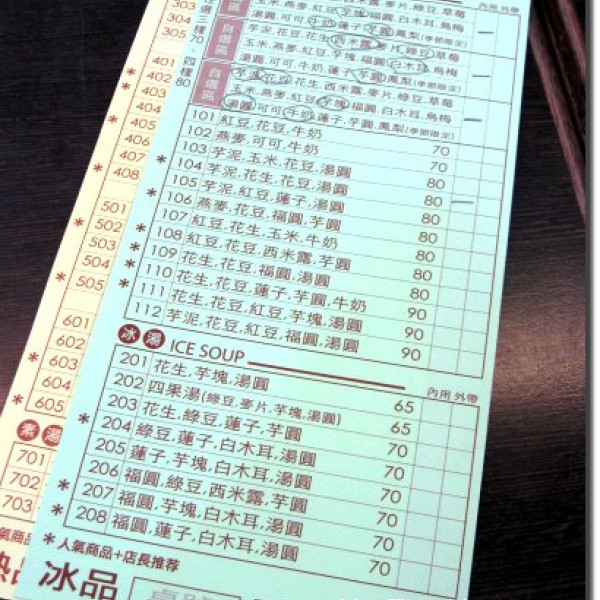 303
304
305
選三種70.四種80
自選區
玉米,燕麥,紅豆,芋塊,福圓,白木耳,烏梅
湯圓,可可,牛奶,蓮子,芋圓,鳳梨(季節限定)
自選區
芋泥,花豆,花生,西米露,麥片,綠豆,草莓
玉米,燕麥,紅豆,芋塊,福圓,白木耳,烏梅
湯圓,可可,牛奶,蓮子,芋圓,鳳梨(季節限定)
自選區
芋泥,花豆,花生,西米露,麥片,綠豆,草莓
玉米,燕麥,紅豆,芋塊,福圓,白木耳,烏梅
湯圓,可可,牛奶,蓮子,芋圓,鳳梨(季節限定)
101 紅豆,花豆,牛奶 70
102 燕麥,可可,牛奶 70
103 芋泥,玉米,花豆,湯圓 80
* 104 芋泥,花生,花豆,湯圓 80
105 芋泥,紅豆,蓮子,湯圓 80
* 106 燕麥,花豆,福圓,芋圓 80
107 紅豆,花生,玉米,牛奶 80
* 108 紅豆,花豆,西米露,芋圓 80
* 109 花生,花豆,福圓,湯圓 80
110 花生,花豆,蓮子,芋圓,牛奶 90
* 111 花生,花豆,紅豆,芋塊,湯圓 90
112 芋泥,花豆,紅豆,福圓,湯圓 90
冰湯 ICE SOUP 內用 外帶
201 花生,芋塊,湯圓 65
202 四果湯(綠豆,麥片,芋塊,湯圓) 65
* 203 花生,綠豆,蓮子,芋圓 70
204 綠豆,蓮子,白木耳,湯圓 70
205 蓮子,芋塊,白木耳,湯圓 70
206 福圓,綠豆,西米露,芋圓 70
* 207 福圓,芋塊,白木耳,湯圓 70
* 208 福圓,蓮子,白木耳,湯圓 70
* 人氣商品+店長推荐
冰品
401
* 402
* 403
404
* 405
406
407
* 408
501
* 502
503
504
* 505
601
602
* 603
604
* 605
湯
701
702
703
氣商品